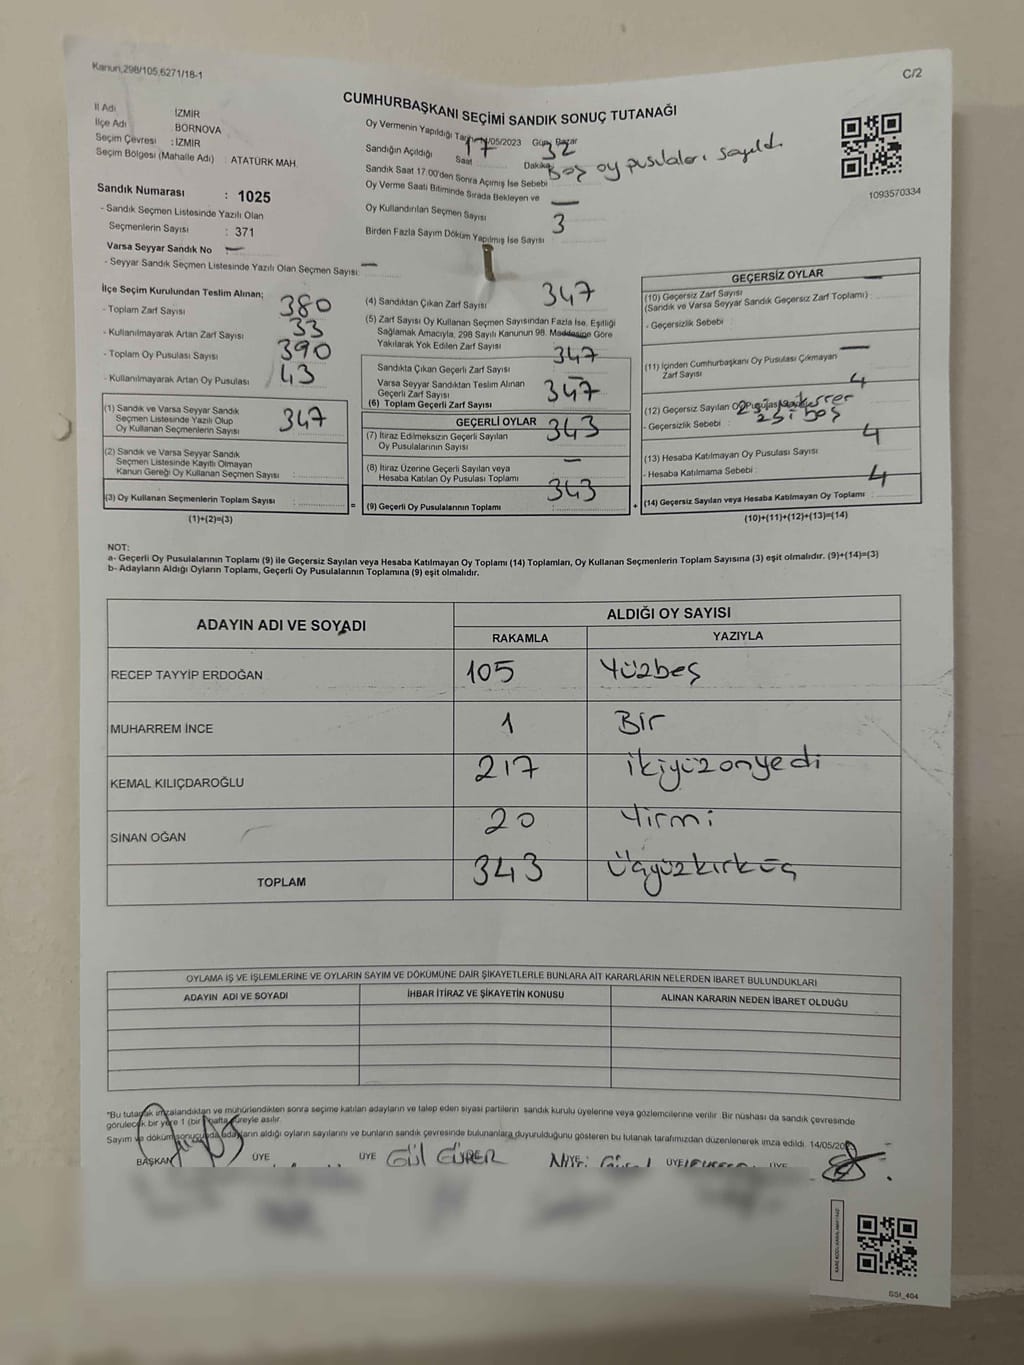 Kanun,298/105,6271/18-1
C/2
CUMHURBAŞKANI SEÇİMİ SANDIK SONUÇ TUTANAĞI
İl Adı : İZMİR
İlçe Adı : BORNOVA
Seçim Çevresi : İZMİR
Seçim Bölgesi (Mahalle Adı) : ATATÜRK MAH.
Sandık Numarası : 1025
- Sandık Seçmen Listesinde Yazılı Olan
Seçmenlerin Sayısı : 371
Varsa Seyyar Sandık No —
- Seyyar Sandık Seçmen Listesinde Yazılı Olan Seçmen Sayısı: —
Oy Vermenin Yapıldığı /05/2023 Gün Pazar
Sandığın Açıldığı Saat 17 Dakika 32
Sandık Saat 17.00'den Sonra Açımış İse Sebebi Boş oy pusulaları sayıldı.
Oy Verme Saati Bitiminde Sırada Bekleyen ve
Oy Kullandırılan Seçmen Sayısı —
Birden Fazla Sayım Döküm Yapılmış İse Sayısı 3
1093570334
İlçe Seçim Kurulundan Teslim Alınan;
- Toplam Zarf Sayısı 380
- Kullanılmayarak Artan Zarf Sayısı 33
- Toplam Oy Pusulası Sayısı 390
- Kullanılmayarak Artan Oy Pusulası 43
(1) Sandık ve Varsa Seyyar Sandık
Seçmen Listesinde Yazılı Olup
Oy Kullanan Seçmenlerin Sayısı 347
(2) Sandık ve Varsa Seyyar Sandık
Seçmen Listesinde Kayıtlı Olmayan
Kanun Gereği Oy Kullanan Seçmen Sayısı :
(3) Oy Kullanan Seçmenlerin Toplam Sayısı :
(1)+(2)=(3)
(4) Sandıktan Çıkan Zarf Sayısı 347
(5) Zarf Sayısı Oy Kullanan Seçmen Sayısından Fazla İse, Eşitliği
Sağlamak Amacıyla, 298 Sayılı Kanunun 98. Maddesine Göre
Yakılarak Yok Edilen Zarf Sayısı —
Sandıkta Çıkan Geçerli Zarf Sayısı 347
Varsa Seyyar Sandıktan Teslim Alınan
Geçerli Zarf Sayısı —
(6) Toplam Geçerli Zarf Sayısı 347
GEÇERLİ OYLAR
(7) İtiraz Edilmeksizin Geçerli Sayılan
Oy Pusulalarının Sayısı 343
(8) İtiraz Üzerine Geçerli Sayılan veya
Hesaba Katılan Oy Pusulası Toplamı —
(9) Geçerli Oy Pusulalarının Toplamı 343
GEÇERSİZ OYLAR
(10) Geçersiz Zarf Sayısı —
(Sandık ve Varsa Seyyar Sandık Geçersiz Zarf Toplamı)
- Geçersizlik Sebebi :
(11) İçinden Cumhurbaşkanı Oy Pusulası Çıkmayan
Zarf Sayısı —
(12) Geçersiz Sayılan Oy Pusulası 4
- Geçersizlik Sebebi : 2si boş
(13) Hesaba Katılmayan Oy Pusulası Sayısı 4
- Hesaba Katılmama Sebebi :
(14) Geçersiz Sayılan veya Hesaba Katılmayan Oy Toplamı 4
(10)+(11)+(12)+(13)=(14)
NOT:
a- Geçerli Oy Pusulalarının Toplamı (9) ile Geçersiz Sayılan veya Hesaba Katılmayan Oy Toplamı (14) Toplamları, Oy Kullanan Seçmenlerin Toplam Sayısına (3) eşit olmalıdır. (9)+(14)=(3)
b- Adayların Aldığı Oyların Toplamı, Geçerli Oy Pusulalarının Toplamına (9) eşit olmalıdır.
ADAYIN ADI VE SOYADI
ALDIĞI OY SAYISI
RAKAMLA YAZIYLA
RECEP TAYYİP ERDOĞAN 105 Yüzbeş
MUHARREM İNCE 1 Bir
KEMAL KILIÇDAROĞLU 217 ikiyüzonyedi
SİNAN OĞAN 20 Yirmi
TOPLAM 343 Üçyüzkırküç
OYLAMA İŞ VE İŞLEMLERİNE VE OYLARIN SAYIM VE DÖKÜMÜNE DAİR ŞİKAYETLERLE BUNLARA AİT KARARLARIN NELERDEN İBARET BULUNDUKLARI
ADAYIN ADI VE SOYADI İHBAR İTİRAZ VE ŞİKAYETİN KONUSU ALINAN KARARIN NEDEN İBARET OLDUĞU
"Bu tutanak imzalandıktan ve mühürlendikten sonra seçime katılan adayların ve talep eden siyasi partilerin sandık kurulu üyelerine veya gözlemcilerine verilir. Bir nüshası da sandık çevresinde
görülecek bir yere 1 (bir) hafta süreyle asılır.
Sayım ve döküm sonucunda adayların aldığı oyların sayılarını ve bunların sandık çevresinde bulunanlara duyurulduğunu gösteren bu tutanak tarafımızdan düzenlenerek imza edildi. 14/05/20
BAŞKAN ÜYE ÜYE Gül GÜRER ÜYE ÜYE
SSI_404